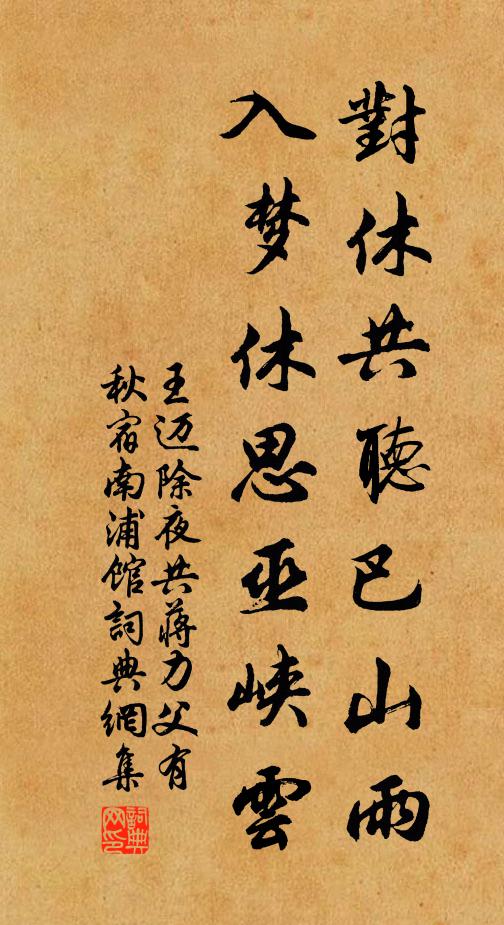 對休共聽巴山雨
入梦休思巫峽雲
王迈除夜共蔣力父有
秋宿南浦館詞典網集
詞典
网印